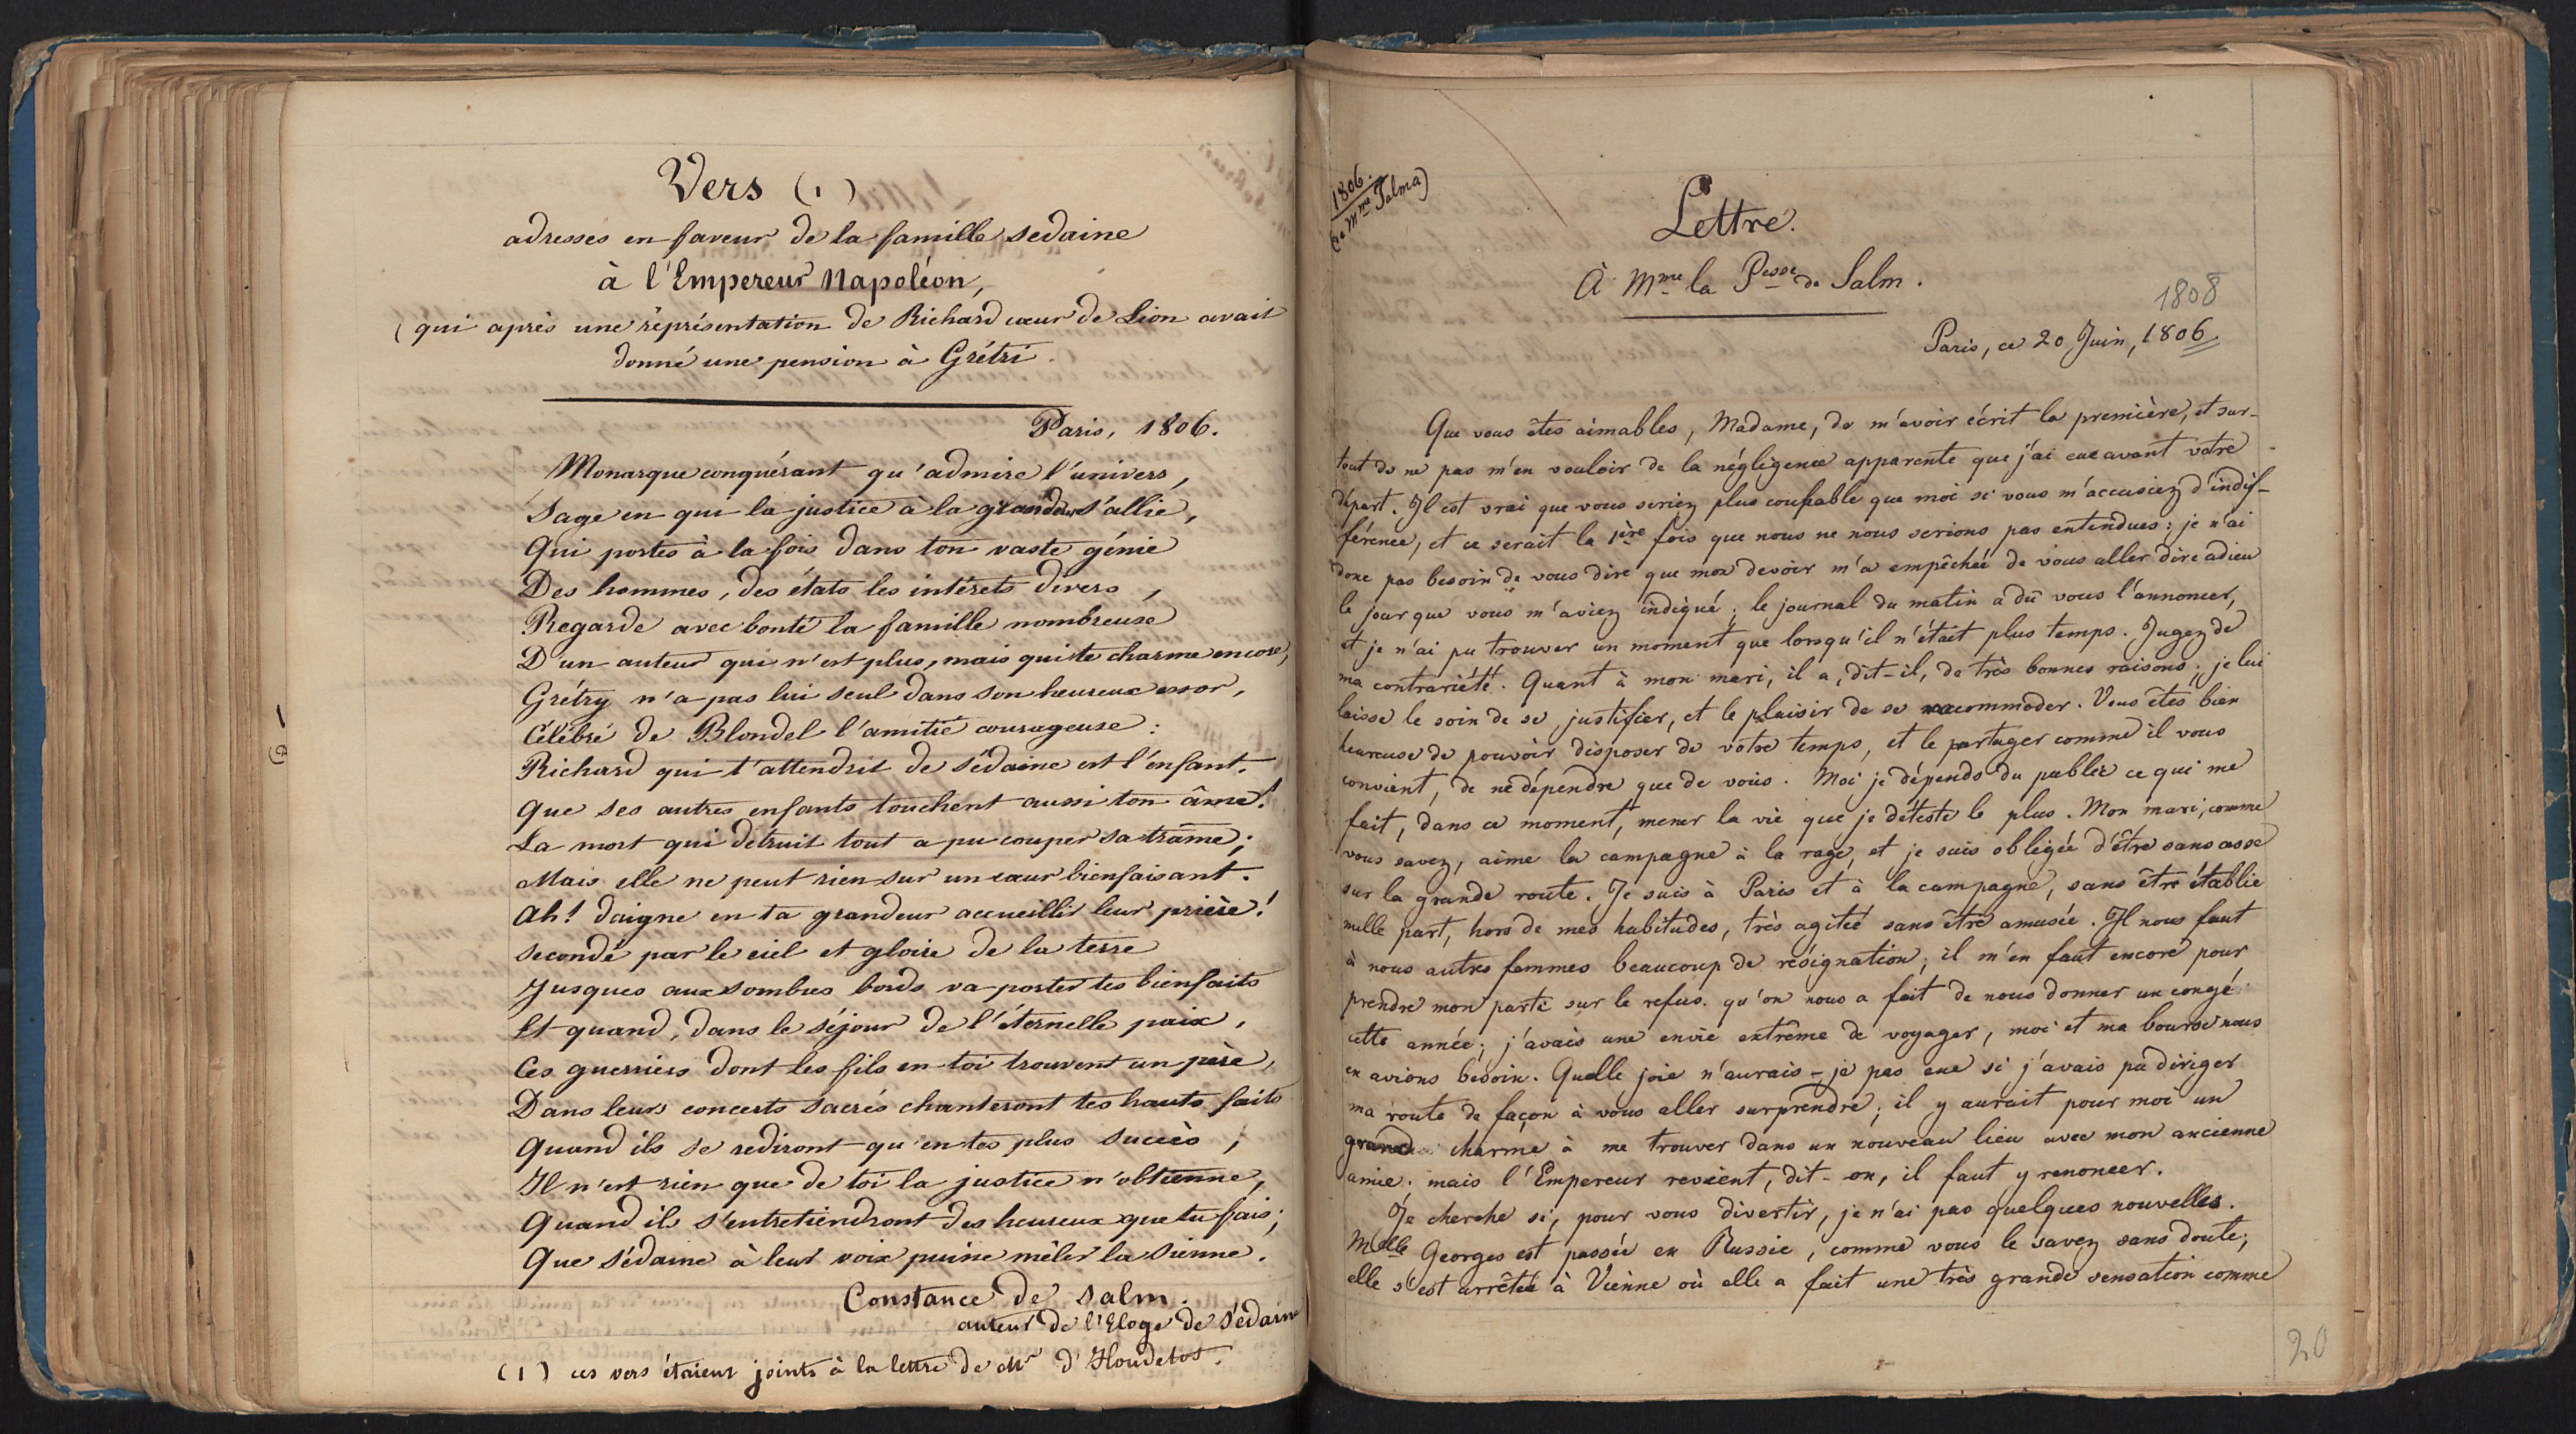 Vers (1)
adressés en faveur de la famille sedaine
à l'Empereur Napoléon,
(qui après une réprésentation de Richard cœur de Lion avait
donné une pension à Grétri.
Paris, 1806.
Monarque conquérant qu'admire l'univers,
Sage en qui la justice à la grandeur s'allie,
Qui portes à la fois dans ton vaste génie
Des hommes, des états les intérets divers,
Regarde avec bonté la famille nombreuse
D'un auteur qui n'est plus, mais qui te charme encore,
Grétry n'a pas lui seul dans son heureux essor,
Célébré de Blondel l'amitié courageuse :
Richard qui t'attendrit de sédaine est l'enfant.
Que ses autres enfants touchent aussi ton âme!
La mort qui détruit tout a pu couper sa trâme;
Mais elle ne peut rien sur un cœur bienfaisant.
Ah! daigne en ta grandeur accueillir leur prière!
Secondé par le ciel et gloire de la terre
Jusques aux sombres bords va porter tes bienfaits
Et quand, dans le séjour de l'éternelle paix,
Ces guerriers dont les fils en toi trouvent un père,
Dans leurs concerts sacrés chanteront tes hauts faits
Quand ils se rediront qu'en tes plus succès,
Il n'est rien que de toi la justice n'obtienne,
Quand ils s'entretiendront des heureux que tu fais;
Que Sédaine à leur voix puisse mêler la sienne.
Constance de Salm.
auteur de l'Eloge de Sédaine
(1) ces vers étaient joints à la lettre de Mr d'Houdetot.
1806.
(de Mme Talma)
Lettre.
À Mme la Pesse de Salm.
1808
Paris, ce 20 Juin, 1806.
Que vous êtes aimables, Madame, de m'avoir écrit la première, et sur-
tout de ne pas m'en vouloir de la négligence apparente que j'ai eue avant votre
départ. Il est vrai que vous seriez plus coupable que moi si vous m'accusiez d'indif-
férence, et ce serait la 1ère fois que nous ne nous serions pas entendues: je n'ai
donc pas besoin de vous dire que mon devoir m'a empêchée de vous aller dire adieu
le jour que vous m'aviez indiqué; le journal du matin a dû vous l'annoncer,
et je n'ai pu trouver un moment que lorsqu'il n'était plus temps. Jugez de
ma contrariété. Quant à mon mari, il a, dit-il, de très bonnes raisons; je lui
laisse le soin de se justifier, et le plaisir de se racommoder. Vous êtes bien
heureuse de pouvoir disposer de votre temps, et le partager comme il vous
convient, de ne dépendre que de vous. Moi je dépends du public ce qui me
fait, dans ce moment, mener la vie que je déteste le plus. Mon mari, comme
vous savez, aime la campagne à la rage, et je suis obligée d'être sans cesse
sur la grande route. Je suis à Paris et à la campagne, sans être établie
nulle part, hors de mes habitudes, très agitée sans être amusée. Il nous faut
à nous autres femmes beaucoup de résignation; il m'en faut encore pour
prendre mon parti sur le refus qu'on nous a fait de nous donner un congé
cette année; j'avais une envie extrême de voyager, moi et ma bourse nous
en avions besoin. Quelle joie n'aurais-je pas eue si j'avais pu diriger
ma route de façon à vous aller surprendre; il y aurait pour moi un
grand charme à me trouver dans un nouveau lieu avec mon ancienne
amie. mais l'Empereur revient, dit-on, il faut y renoncer.
Je cherche si, pour vous divertir, je n'ai pas quelques nouvelles.
Melle Georges est passée en Russie, comme vous le savez sans doute;
elle s'est arrêtée à Vienne où elle a fait une très grande sensation comme
20